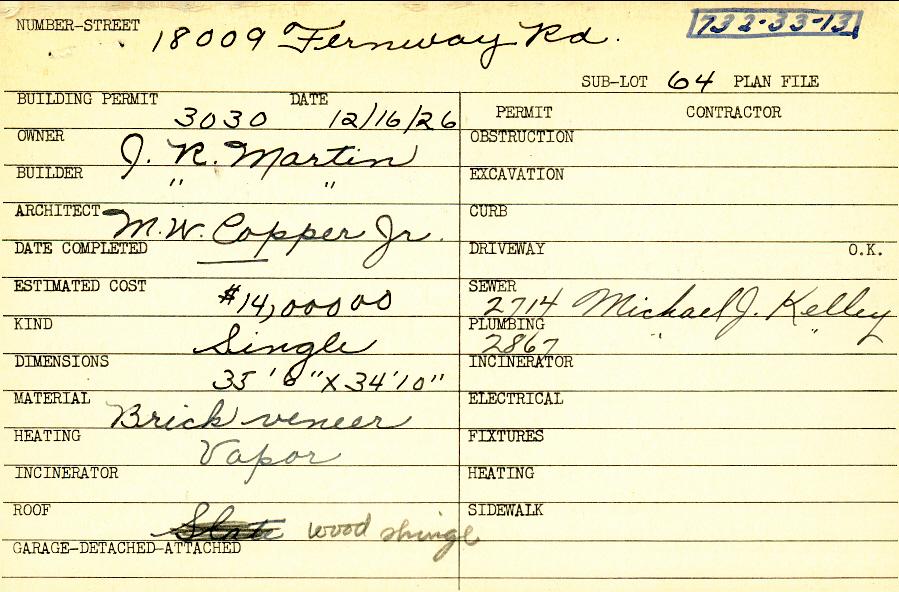 NUMBER-STREET 18009 Fernway Rd. 732-33-13
SUB-LOT 64 PLAN FILE
BUILDING PERMIT 3030 DATE 12/16/26
PERMIT CONTRACTOR
OWNER J. R. Martin
OBSTRUCTION
BUILDER " "
EXCAVATION
ARCHITECT M.W. Copper Jr.
CURB
DATE COMPLETED
DRIVEWAY O.K.
ESTIMATED COST $14,000 00
SEWER 2714 Michael J. Kelley
KIND Single
PLUMBING 2867 " "
DIMENSIONS 35'6" X 34'10"
INCINERATOR
MATERIAL Brick veneer
ELECTRICAL
HEATING Vapor
FIXTURES
INCINERATOR
HEATING
ROOF Slate wood shingle
SIDEWALK
GARAGE-DETACHED-ATTACHED